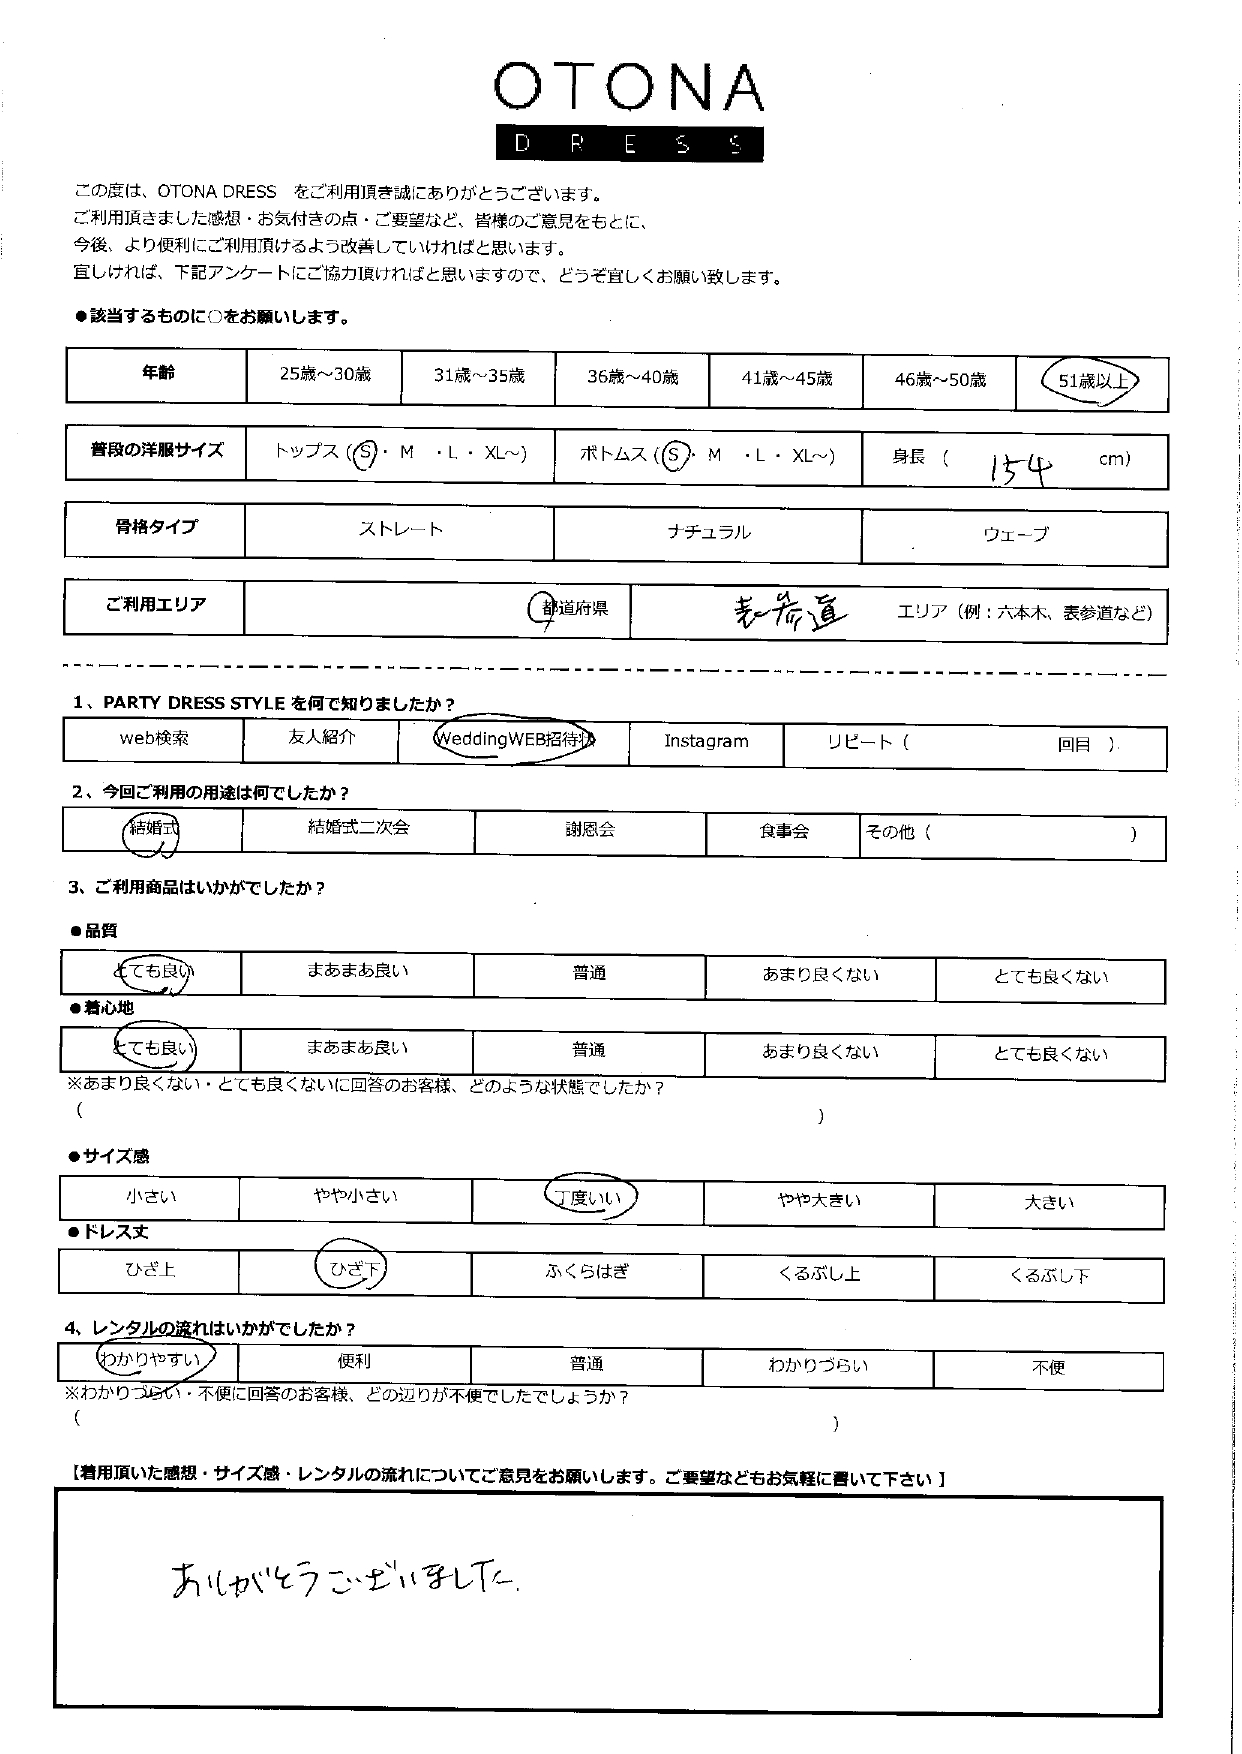 OTONA
DRESS
この度は、OTONA DRESS　をご利用頂き誠にありがとうございます。
ご利用頂きました感想・お気付きの点・ご要望など、皆様のご意見をもとに、
今後、より便利にご利用頂けるよう改善していければと思います。
宜しければ、下記アンケートにご協力頂ければと思いますので、どうぞ宜しくお願い致します。
●該当するものに○をお願いします。
年齢 25歳～30歳 31歳～35歳 36歳～40歳 41歳～45歳 46歳～50歳 51歳以上
普段の洋服サイズ トップス（S・ M ・L ・ XL～） ボトムス（S・ M ・L ・ XL～） 身長 （ 154 cm）
骨格タイプ ストレート ナチュラル ウェーブ
ご利用エリア 都道府県 表参道 エリア（例：六本木、表参道など）
1、PARTY DRESS STYLE を何で知りましたか？
web検索 友人紹介 WeddingWEB招待状 Instagram リピート（ 回目 ）
2、今回ご利用の用途は何でしたか？
結婚式 結婚式二次会 謝恩会 食事会 その他（ ）
3、ご利用商品はいかがでしたか？
●品質
とても良い まあまあ良い 普通 あまり良くない とても良くない
●着心地
とても良い まあまあ良い 普通 あまり良くない とても良くない
※あまり良くない・とても良くないに回答のお客様、どのような状態でしたか？
（ ）
●サイズ感
小さい やや小さい 丁度いい やや大きい 大きい
●ドレス丈
ひざ上 ひざ下 ふくらはぎ くるぶし上 くるぶし下
4、レンタルの流れはいかがでしたか？
わかりやすい 便利 普通 わかりづらい 不便
※わかりづらい・不便に回答のお客様、どの辺りが不便でしたでしょうか？
（ ）
【着用頂いた感想・サイズ感・レンタルの流れについてご意見をお願いします。ご要望などもお気軽に書いて下さい 】
ありがとうございました.